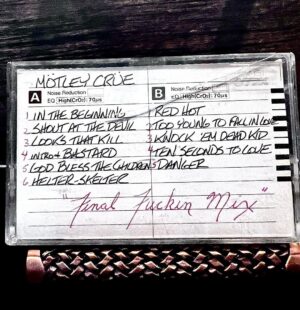 MÖTLEY CRÜE
A Noise Reduction
EQ High(CrO2) 70µs
1 IN THE BEGINNING
2 SHOUT AT THE DEVIL
3 LOOKS THAT KILL
4 INTRO & BASTARD
5 GOD BLESS THE CHILDREN
6 HELTER SKELTER
B Noise Reduction
EQ High(CrO2) 70µs
1 RED HOT
2 TOO YOUNG TO FALL IN LOVE
3 KNOCK 'EM DEAD KID
4 TEN SECONDS TO LOVE
5 DANGER
"Final Fuckin Mix"